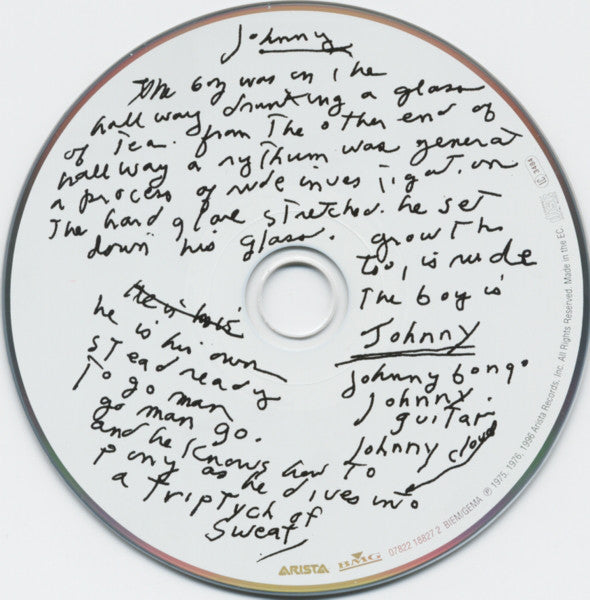 Johnny
The boy was in The
hallway drinking a glass
of Tea. from The other end of
hallway a rythum was generat
a process of rude investigation
The hard glare stretched. he set
down his glass. growth
Too, is rude
The boy is
Johnny
Johnny bongo
Johnny.
guitar
Johnny cloud
he is his own
stead ready
To go man
go man go.
and he knows how To
pony as he dives into
a Triptych of
Sweat
ARISTA
BMG
07822 18827 2 BIEM/GEMA ℗ 1975, 1976, 1996 Arista Records, Inc. All Rights Reserved. Made in the EC.
LC 3484